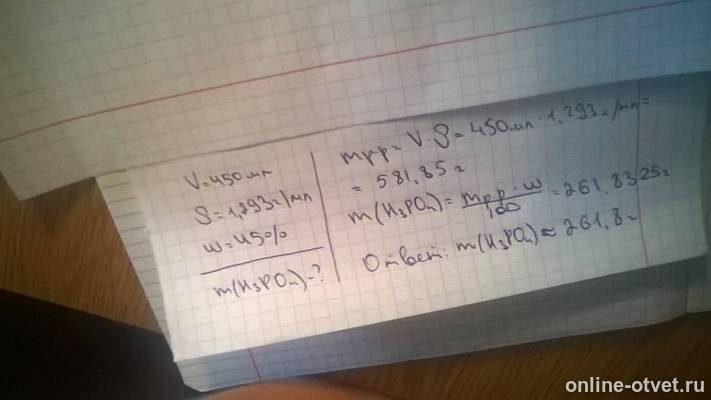 V=450мл
S=1,293г/мл
w=45%
m(H₃PO₄)-?
mрр=V·S=450мл·1,293г/мл=
=581,85г
m(H₃PO₄)=mрр·w/100=261,8325г
Ответ: m(H₃PO₄)≈261,8г
online-otvet.ru